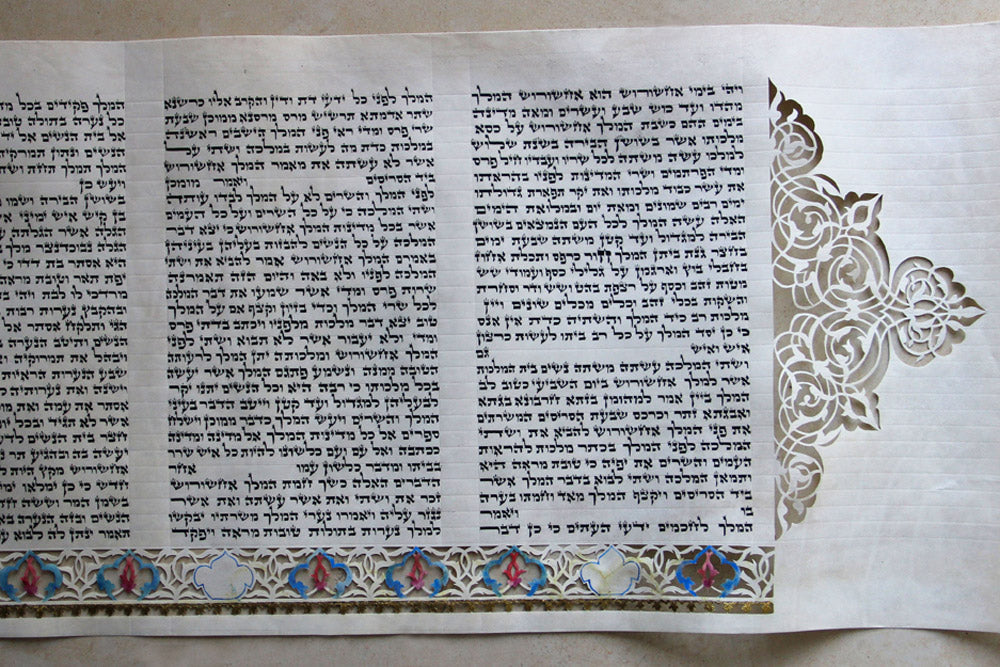 ויהי בימי אחשורוש הוא אחשורוש המלך
מהדו ועד כוש שבע ועשרים ומאה מדינה
בימים ההם כשבת המלך אחשורוש על כסא
מלכותו אשר בשושן הבירה בשנת שלוש
למלכו עשה משתה לכל שריו ועבדיו חיל פרס
ומדי הפרתמים ושרי המדינות לפניו בהראתו
את עשר כבוד מלכותו ואת יקר תפארת גדולתו
ימים רבים שמונים ומאת יום ובמלואת הימים
האלה עשה המלך לכל העם הנמצאים בשושן
הבירה למגדול ועד קטן משתה שבעת ימים
בחצר גנת ביתן המלך חור כרפס ותכלת אחוז
בחבלי בוץ וארגמן על גלילי כסף ועמודי שש
מטות זהב וכסף על רצפת בהט ושש ודר וסחרת
והשקות בכלי זהב וכלים מכלים שונים ויין
מלכות רב כיד המלך והשתיה כדת אין אנס
כי כן יסד המלך על כל רב ביתו לעשות כרצון
איש ואיש גם
ושתי המלכה עשתה משתה נשים בית המלכות
אשר למלך אחשורוש ביום השביעי כטוב לב
המלך ביין אמר למהומן בזתא חרבונא בגתא
ואבגתא זתר וכרכס שבעת הסריסים המשרתים
את פני המלך אחשורוש להביא את ושתי
המלכה לפני המלך בכתר מלכות להראות
העמים והשרים את יפיה כי טובת מראה היא
ותמאן המלכה ושתי לבוא בדבר המלך אשר
ביד הסריסים ויקצף המלך מאד וחמתו בערה
בו ויאמר
המלך לחכמים ידעי העתים כי כן דבר
המלך לפני כל ידעי דת ודין והקרב אליו כרשנא
שתר אדמתא תרשיש מרס מרסנא ממוכן שבעת
שרי פרס ומדי ראי פני המלך הישבים ראשנה
במלכות כדת מה לעשות במלכה ושתי על
אשר לא עשתה את מאמר המלך אחשורוש
ביד הסריסים ויאמר מומכן
לפני המלך והשרים לא על המלך לבדו עותה
ושתי המלכה כי על כל השרים ועל כל העמים
אשר בכל מדינות המלך אחשורוש כי יצא דבר
המלכה על כל הנשים להבזות בעליהן בעיניהן
באמרם המלך אחשורוש אמר להביא את ושתי
המלכה לפניו ולא באה והיום הזה תאמרנה
שרות פרס ומדי אשר שמעו את דבר המלכה
לכל שרי המלך וכדי בזיון וקצף אם על המלך
טוב יצא דבר מלכות מלפניו ויכתב בדתי פרס
ומדי ולא יעבור אשר לא תבוא ושתי לפני
המלך אחשורוש ומלכותה יתן המלך לרעותה
הטובה ממנה ונשמע פתגם המלך אשר יעשה
בכל מלכותו כי רבה היא וכל הנשים יתנו יקר
לבעליהן למגדול ועד קטן וייטב הדבר בעיני
המלך והשרים ויעש המלך כדבר ממוכן וישלח
ספרים אל כל מדינות המלך אל מדינה ומדינה
ככתבה ואל עם ועם כלשונו להיות כל איש שרר
בביתו ומדבר כלשון עמו אחר
הדברים האלה כשך חמת המלך אחשורוש
זכר את ושתי ואת אשר עשתה ואת אשר
נגזר עליה ויאמרו נערי המלך משרתיו יבקשו
למלך נערות בתולות טובות מראה ויפקד
המלך פקידים בכל
כל נערה בתולה טובת
אל בית הנשים אל
הנשים ונתון
המלך תמלך תחת
ויעש כן
בשושן הבירה ושמו
בן קיש איש ימיני
הגלה אשר הגלתה
הגלה נבוכדנצר מלך
היא אסתר בת דדו כי
יפת תאר וטובת
מרדכי לו לבת ויהי
ובהקבץ נערות רבות
הגי ותלקח אסתר אל
הנשים ותיטב הנערה
ויבהל את תמרוקיה
שבע הנערות הראיות
וישנה ואת נערותיה
אסתר את עמה ואת
אשר לא תגיד ובכל
חצר בית הנשים לדעת
יעשה בה ובהגיע תר
אחשורוש מקץ היות
חדשי כי כן ימלאו ימי
בשמן המר וששה
הנשים ובזה הנערה
תאמר ינתן לה לבוא